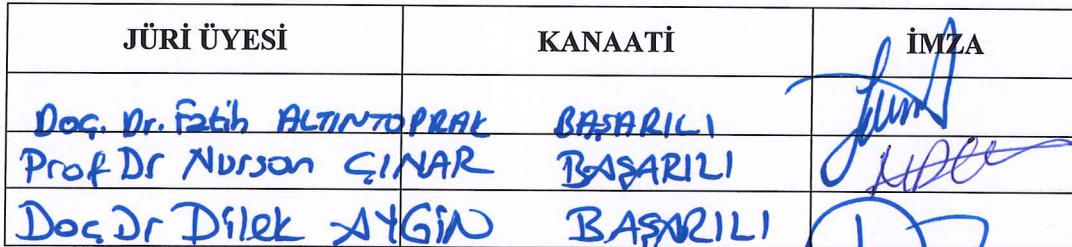 JÜRİ ÜYESİ KANAATİ İMZA
Doç. Dr. Fatih ALTINTOPRAK BAŞARILI
Prof Dr Nursan ÇINAR BAŞARILI
Doç Dr Dilek AYGİN BAŞARILI